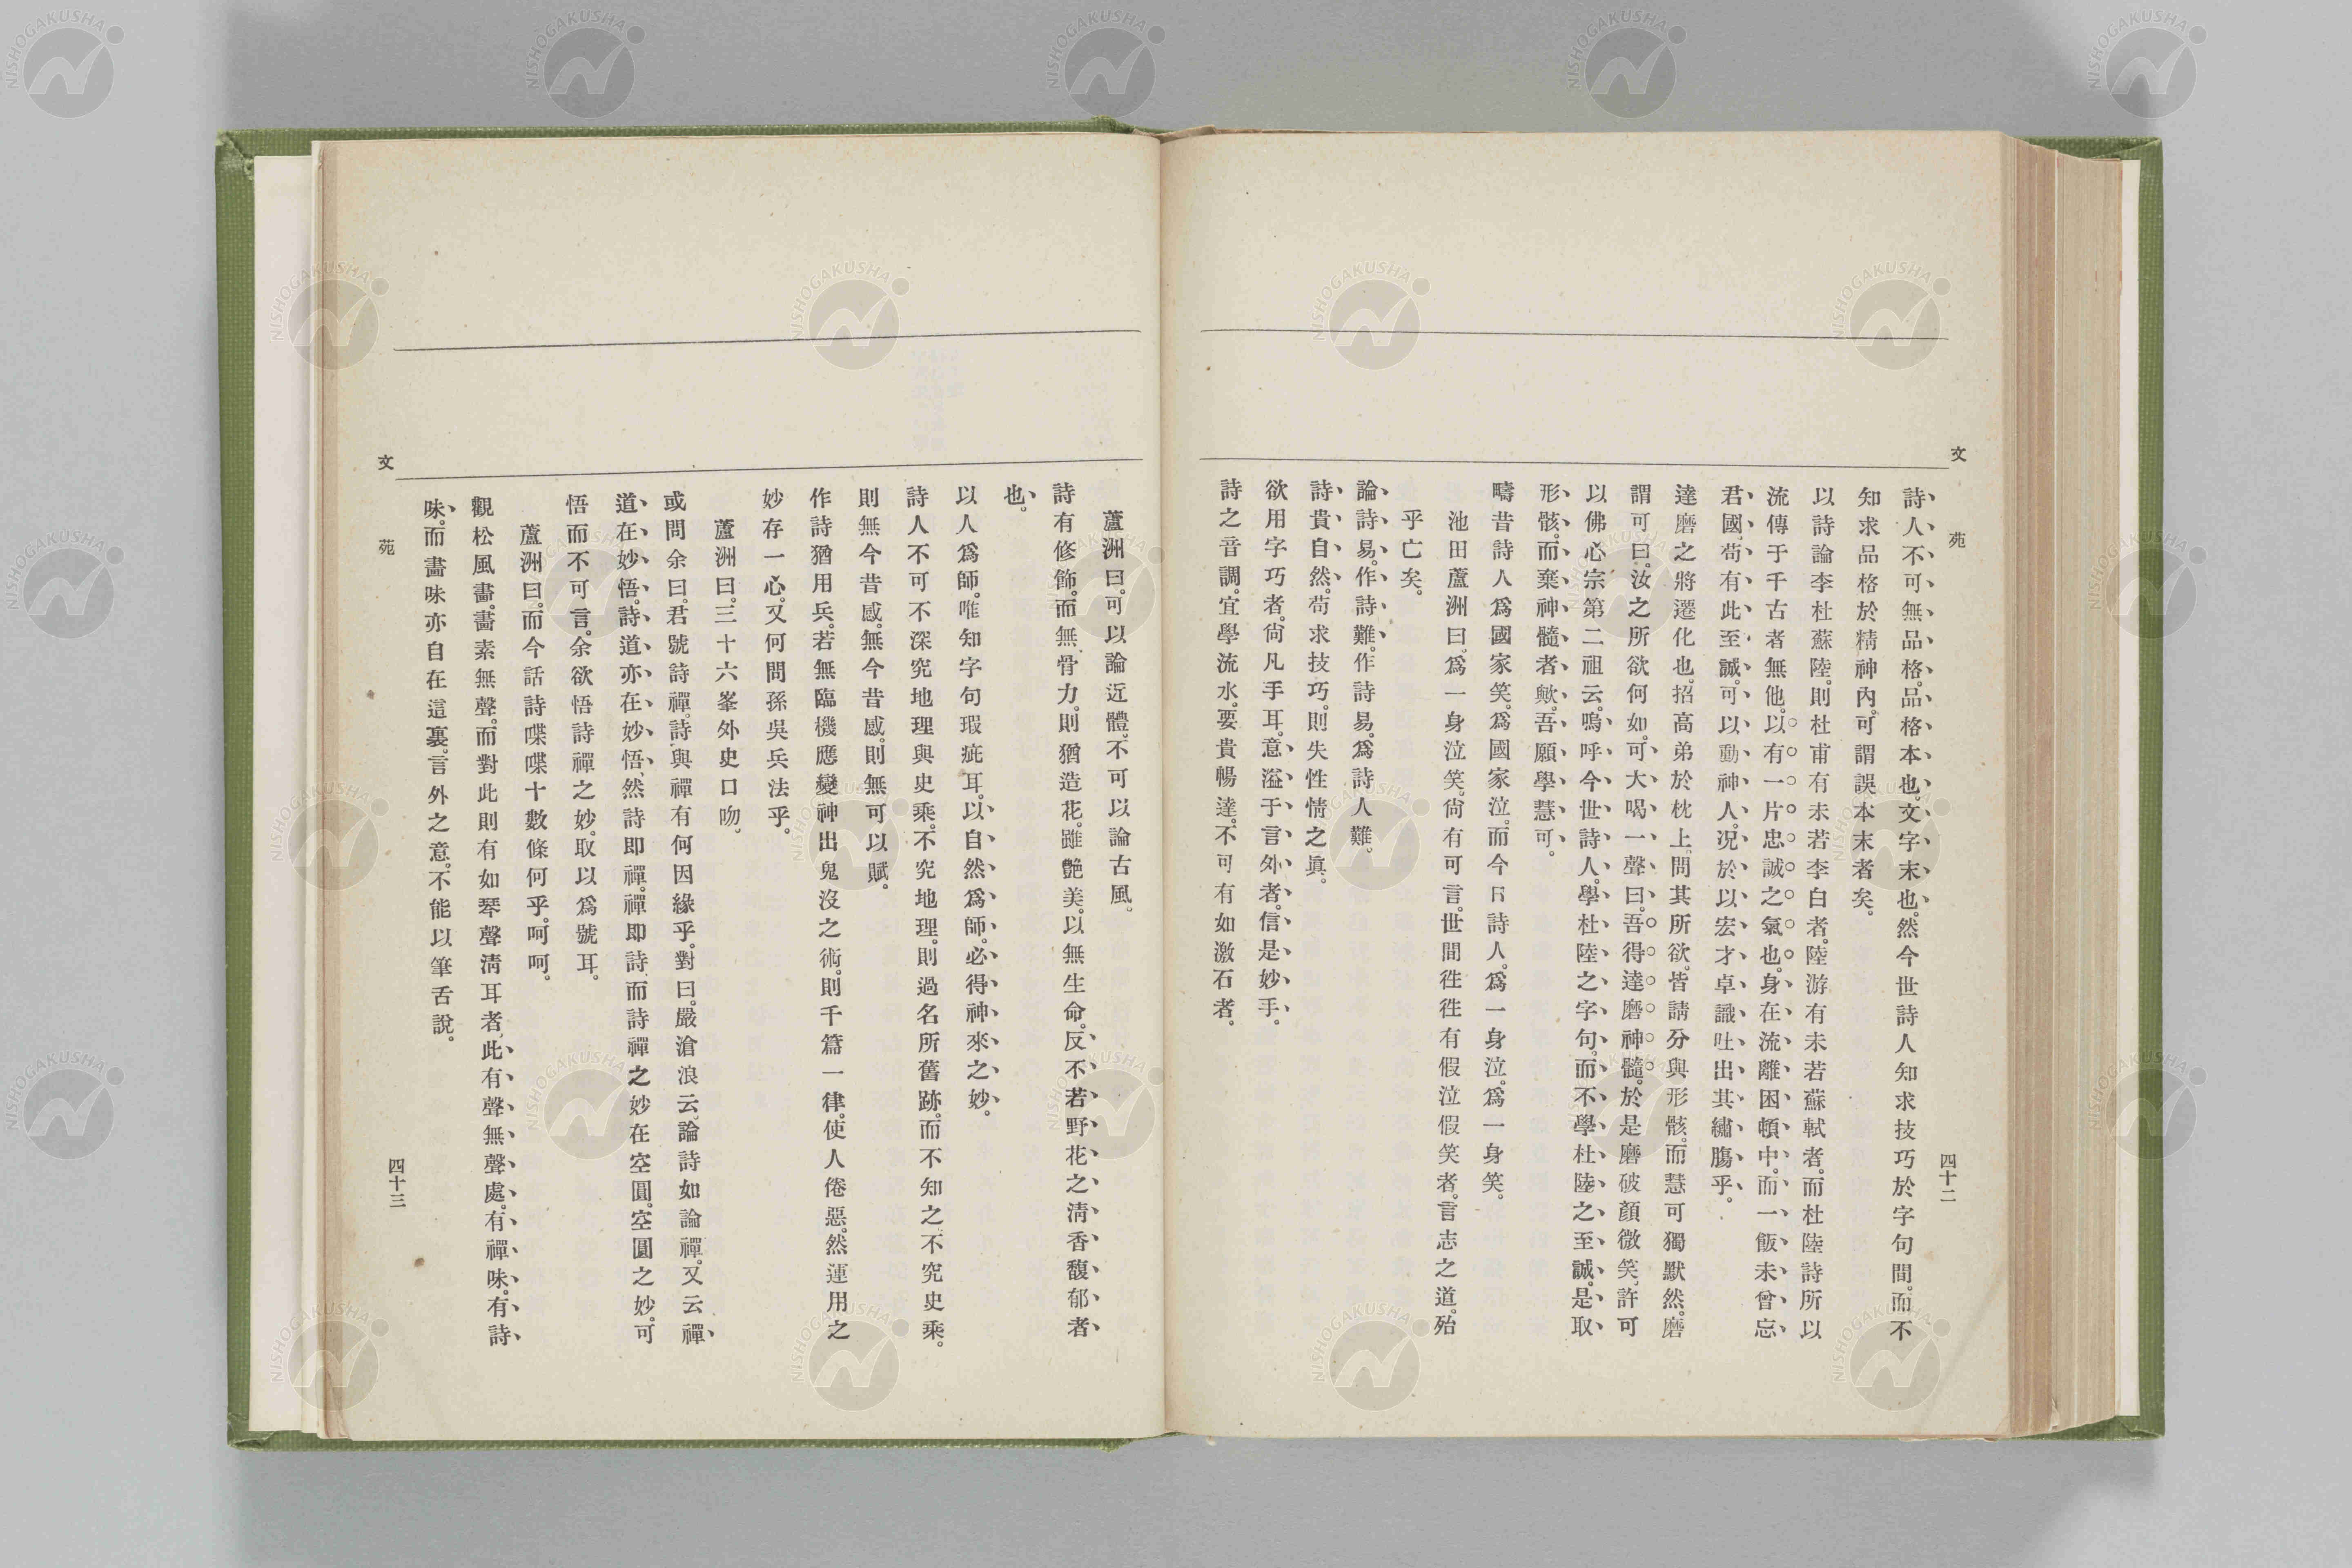 文苑
四十二
詩人不可無品格。品格本也。文字末也。然今世詩人知求技巧於字句間。而不
知求品格於精神內。可謂誤本末者矣。
以詩論李杜蘇陸。則杜甫有未若李白者。陸游有未若蘇軾者。而杜陸詩所以
流傳于千古者無他。以有一片忠誠之氣也。身在流離困頓中。而一飯未曾忘
君國。苟有此至誠。可以動神人。況於以宏才卓識吐出其繡膓乎。
達磨之將遷化也。招高弟於枕上。問其所欲。皆請分與形骸。而慧可獨默然。磨
謂可曰。汝之所欲何如。可大喝一聲曰。吾得達磨神髓。於是磨破顏微笑。許可
以佛心宗第二祖云。嗚呼今世詩人。學杜陸之字句。而不學杜陸之至誠。是取
形骸。而棄神髓者歟。吾願學慧可。
疇昔詩人爲國家笑。爲國家泣。而今日詩人。爲一身泣。爲一身笑。
池田蘆洲曰。爲一身泣笑。尙有可言。世間徃徃有假泣假笑者。言志之道。殆
乎亡矣。
論詩易。作詩難。作詩易。爲詩人難。
詩貴自然。苟求技巧。則失性情之眞。
欲用字巧者。尙凡手耳。意溢于言外者。信是妙手。
詩之音調。宜學流水。要貴暢達。不可有如激石者。
蘆洲曰。可以論近體。不可以論古風。
詩有修飾。而無骨力。則猶造花。雖艷美。以無生命。反不若野花之淸香馥郁者
也。
以人爲師。唯知字句瑕疵耳。以自然爲師。必得神來之妙。
詩人不可不深究地理與史乘。不究地理。則過名所舊跡。而不知之。不究史乘。
則無今昔感。無今昔感。則無可以賦。
作詩猶用兵。若無臨機應變神出鬼沒之術。則千篇一律。使人倦惡。然運用之
妙存一心。又何問孫吳兵法乎。
蘆洲曰。三十六峯外史口吻。
或問余曰。君號詩禪。詩與禪有何因緣乎。對曰。嚴滄浪云。論詩如論禪。又云禪
道在妙悟。詩道亦在妙悟。然詩即禪。禪即詩。而詩禪之妙在空圓。空圓之妙。可
悟而不可言。余欲悟詩禪之妙。取以爲號耳。
蘆洲曰。而今話詩喋喋十數條何乎。呵呵。
觀松風畫。畫素無聲。而對此則有如琴聲淸耳者。此有聲無聲處。有禪味。有詩
味。而畫味亦自在這裏。言外之意。不能以筆舌說。
文苑
四十三
NISHOGAKUSHA